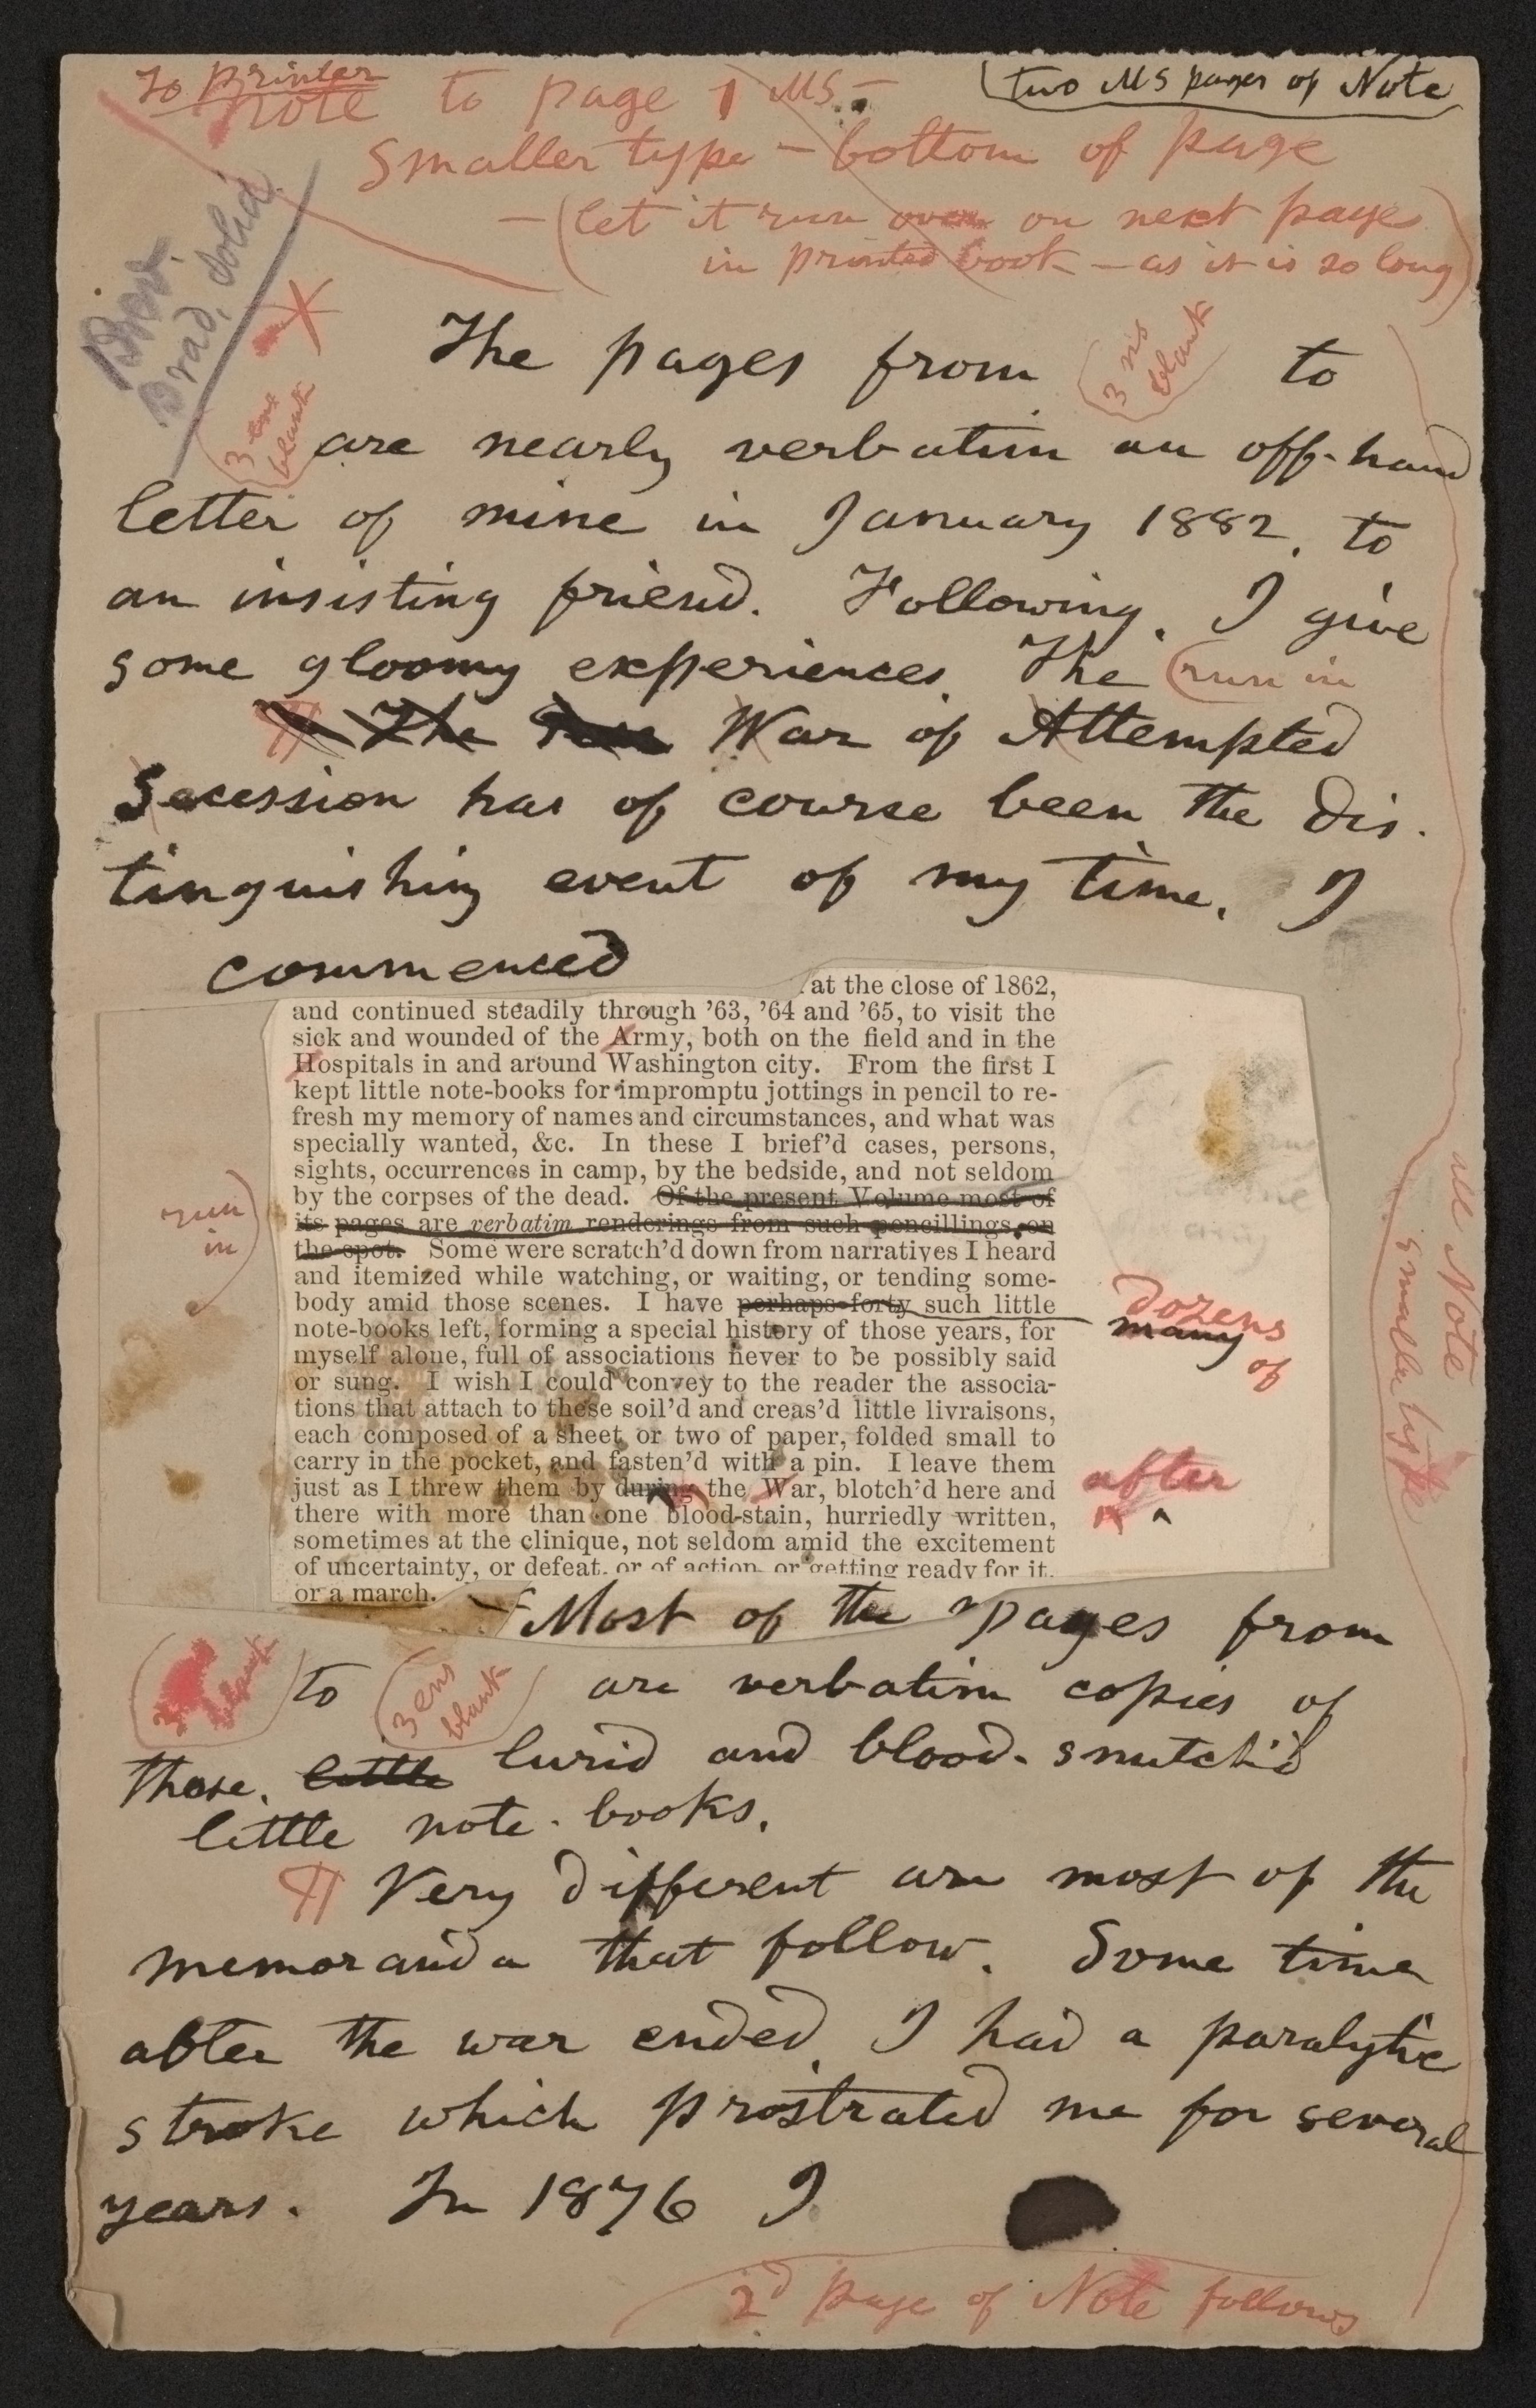 To printer
note to page 1 MS —
two MS pages of Note
Smaller type — bottom of page
— (let it run over on next page
in printed book — as it is so long)
Brev.
Brad, solid
The pages from (3 ens blank) to
(3 ens blank) are nearly verbatim an off-hand
letter of mine in January 1882, to
an insisting friend. Following, I give
some gloomy experiences. The (run in
¶ The War of Attempted
Secession has of course been the dis-
tinguishing event of my time. I
commenced
at the close of 1862,
and continued steadily through '63, '64 and '65, to visit the
sick and wounded of the Army, both on the field and in the
Hospitals in and around Washington city. From the first I
kept little note-books for impromptu jottings in pencil to re-
fresh my memory of names and circumstances, and what was
specially wanted, &c. In these I brief'd cases, persons,
sights, occurrences in camp, by the bedside, and not seldom
by the corpses of the dead. Of the present Volume most of
its pages are verbatim renderings from such pencillings on
the spot. Some were scratch'd down from narratives I heard
and itemized while watching, or waiting, or tending some-
body amid those scenes. I have perhaps forty such little
note-books left, forming a special history of those years, for
myself alone, full of associations never to be possibly said
or sung. I wish I could convey to the reader the associa-
tions that attach to these soil'd and creas'd little livraisons,
each composed of a sheet or two of paper, folded small to
carry in the pocket, and fasten'd with a pin. I leave them
just as I threw them by during the War, blotch'd here and
there with more than one blood-stain, hurriedly written,
sometimes at the clinique, not seldom amid the excitement
of uncertainty, or defeat, or of action, or getting ready for it,
or a march.
run in)
dozens
many
of
after
^
all Note
smaller type
— Most of the pages from
(blank) to (3 ens blank) are verbatim copies of
those, little lurid and blood-smutch'd
little note-books.
¶ Very different are most of the
memoranda that follow. Some time
after the war ended I had a paralytic
stroke which prostrated me for several
years. In 1876 I
2d page of Note follows